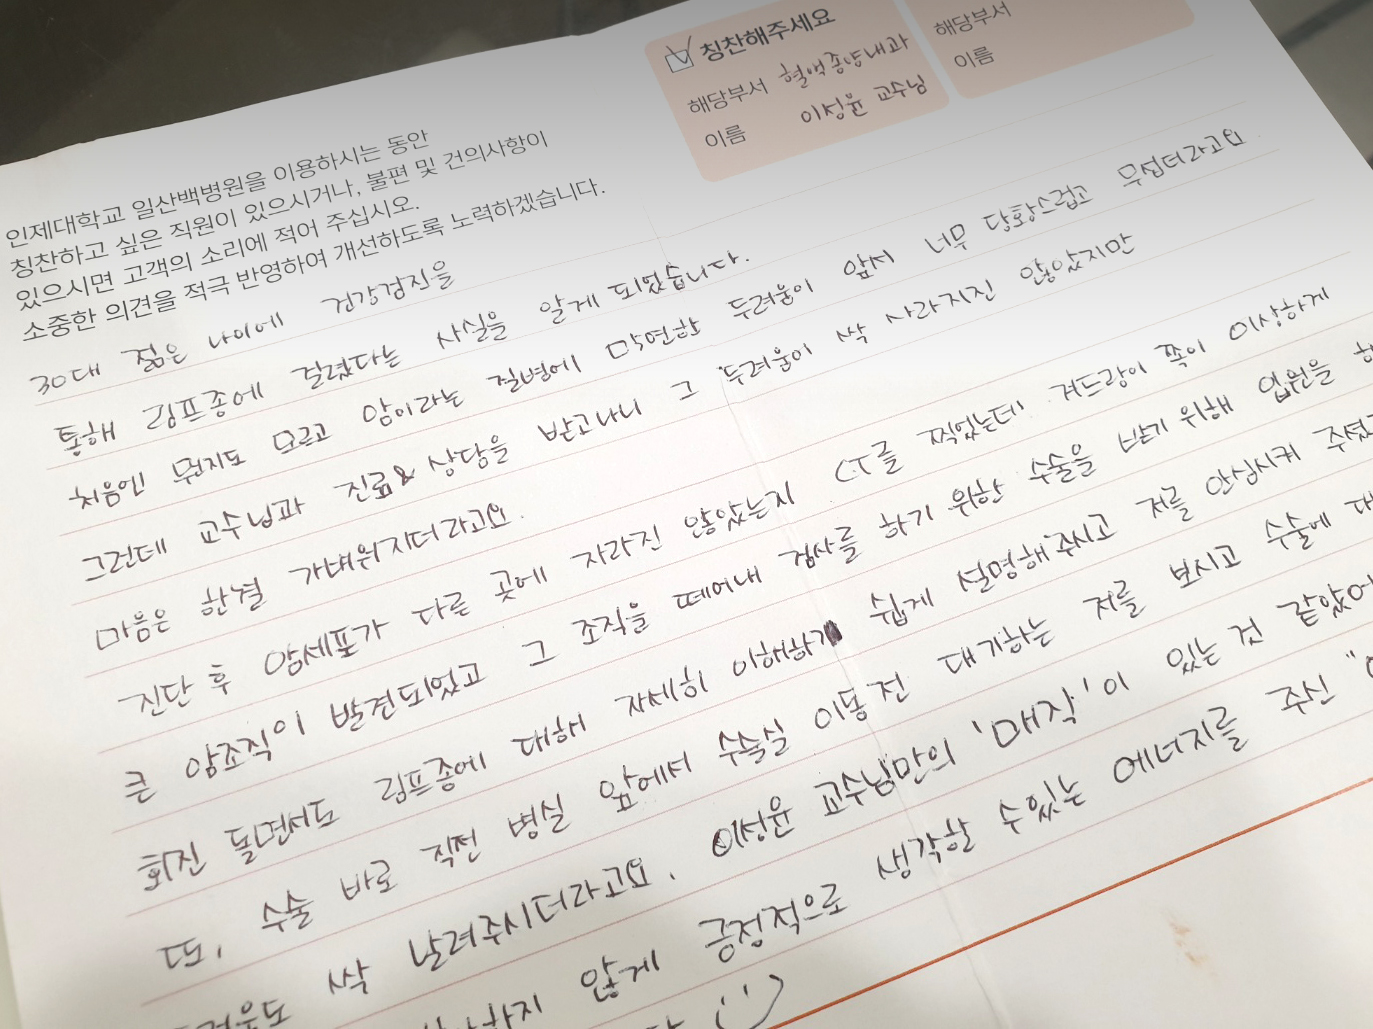 칭찬해주세요
해당부서 혈액종양내과
이름 이성윤 교수님
해당부서
이름
인제대학교 일산백병원을 이용하시는 동안
칭찬하고 싶은 직원이 있으시거나, 불편 및 건의사항이
있으시면 고객의 소리에 적어 주십시오.
소중한 의견을 적극 반영하여 개선하도록 노력하겠습니다.
30대 젊은 나이에 건강검진을
통해 림프종에 걸렸다는 사실을 알게 되었습니다.
처음엔 뭔지도 모르고 암이라는 질병에 막연한 두려움이 앞서 너무 당황스럽고 무섭더라고요.
그런데 교수님과 진료&상담을 받고나니 그 두려움이 싹 사라지진 않았지만
마음은 한결 가벼워지더라고요.
진단 후 암세포가 다른 곳에 자라진 않았는지 CT를 찍었는데 겨드랑이 쪽이 이상하게
큰 암조직이 발견되었고 그 조직을 떼어내 검사를 하기 위한 수술을 받기 위해 입원을
회진 돌면서도 림프종에 대해 자세히 이해하기 쉽게 설명해주시고 저를 안심시켜
또, 수술 바로 직전 병실 앞에서 수술실 이동 전 대기하는 저를 보시고 수술에
싹 날려주시더라고요. 이성윤 교수님만의 '매직'이 있는 것 같았어
않게 긍정적으로 생각할 수있는 에너지를 주신